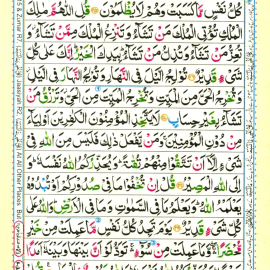 كُلُّ نَفْسٍ مَّا كَسَبَتْ وَهُمْ لَا يُظْلَمُوْنَ ۝ قُلِ اللّٰهُمَّ مٰلِكَ
الْمُلْكِ تُؤْتِي الْمُلْكَ مَنْ تَشَآءُ وَتَنْزِعُ الْمُلْكَ مِمَّنْ تَشَآءُ وَ
تُعِزُّ مَنْ تَشَآءُ وَتُذِلُّ مَنْ تَشَآءُ بِيَدِكَ الْخَيْرُ اِنَّكَ عَلٰى كُلِّ
شَيْءٍ قَدِيْرٌ ۝ تُوْلِجُ الَّيْلَ فِي النَّهَارِ وَتُوْلِجُ النَّهَارَ فِي الَّيْلِ
وَتُخْرِجُ الْحَيَّ مِنَ الْمَيِّتِ وَتُخْرِجُ الْمَيِّتَ مِنَ الْحَيِّ وَتَرْزُقُ مَنْ
تَشَآءُ بِغَيْرِ حِسَابٍ ۝ لَا يَتَّخِذِ الْمُؤْمِنُوْنَ الْكٰفِرِيْنَ اَوْلِيَآءَ
مِنْ دُوْنِ الْمُؤْمِنِيْنَ وَمَنْ يَّفْعَلْ ذٰلِكَ فَلَيْسَ مِنَ اللّٰهِ فِيْ
شَيْءٍ اِلَّآ اَنْ تَتَّقُوْا مِنْهُمْ تُقٰىةً وَيُحَذِّرُكُمُ اللّٰهُ نَفْسَهٗ وَ
اِلَى اللّٰهِ الْمَصِيْرُ ۝ قُلْ اِنْ تُخْفُوْا مَا فِيْ صُدُوْرِكُمْ اَوْ تُبْدُوْهُ
يَعْلَمْهُ اللّٰهُ وَيَعْلَمُ مَا فِي السَّمٰوٰتِ وَمَا فِي الْاَرْضِ وَاللّٰهُ عَلٰى
كُلِّ شَيْءٍ قَدِيْرٌ ۝ يَوْمَ تَجِدُ كُلُّ نَفْسٍ مَّا عَمِلَتْ مِنْ خَيْرٍ
مُّحْضَرًا وَّمَا عَمِلَتْ مِنْ سُوْٓءٍ تَوَدُّ لَوْ اَنَّ بَيْنَهَا وَبَيْنَهٗٓ اَمَدًا